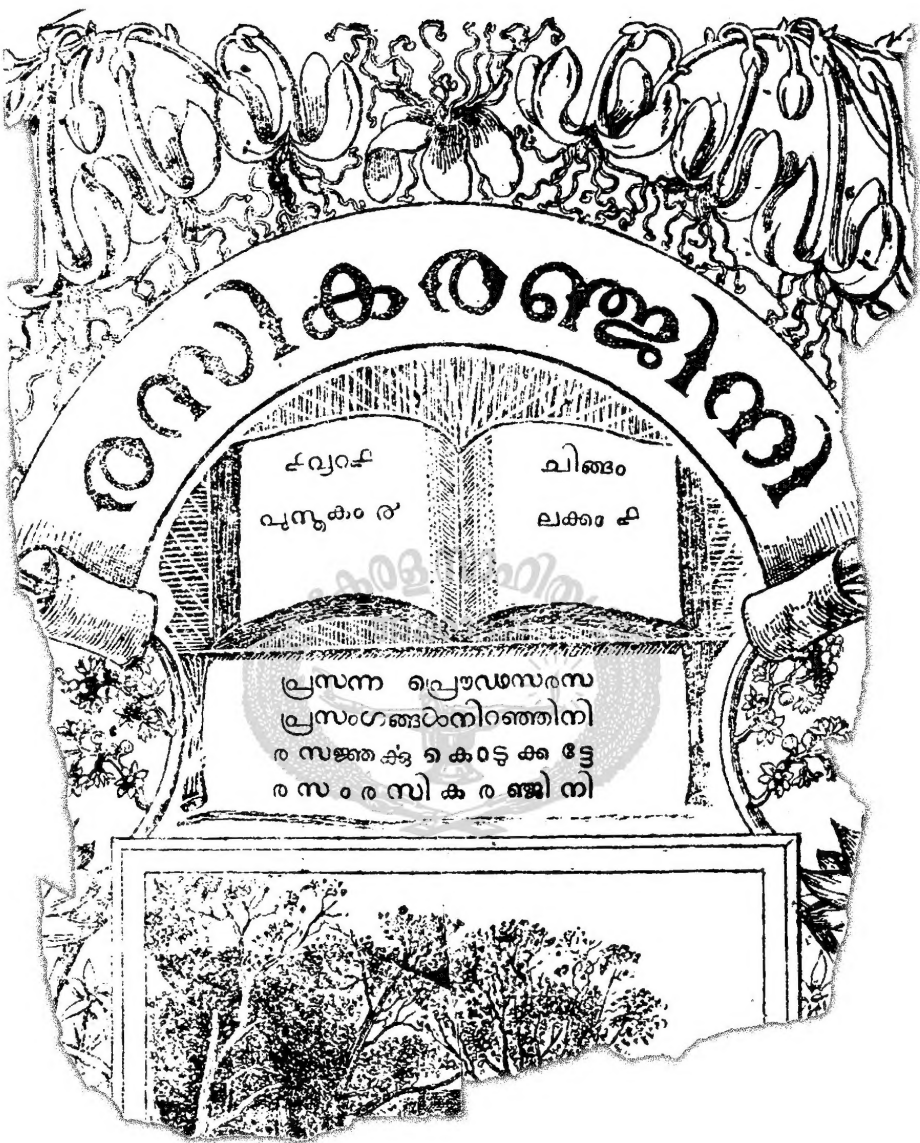 രസികരഞ്ജിനി
൧൦൮൧
ചിങ്ങം
പുസ്തകം ൪
ലക്കം ൧
പ്രസന്ന പ്രൌഢസരസ
പ്രസംഗങ്ങൾനിറഞ്ഞിനി
രസജ്ഞൎക്കു കൊടുക്കട്ടേ
രസം രസികരഞ്ജിനി